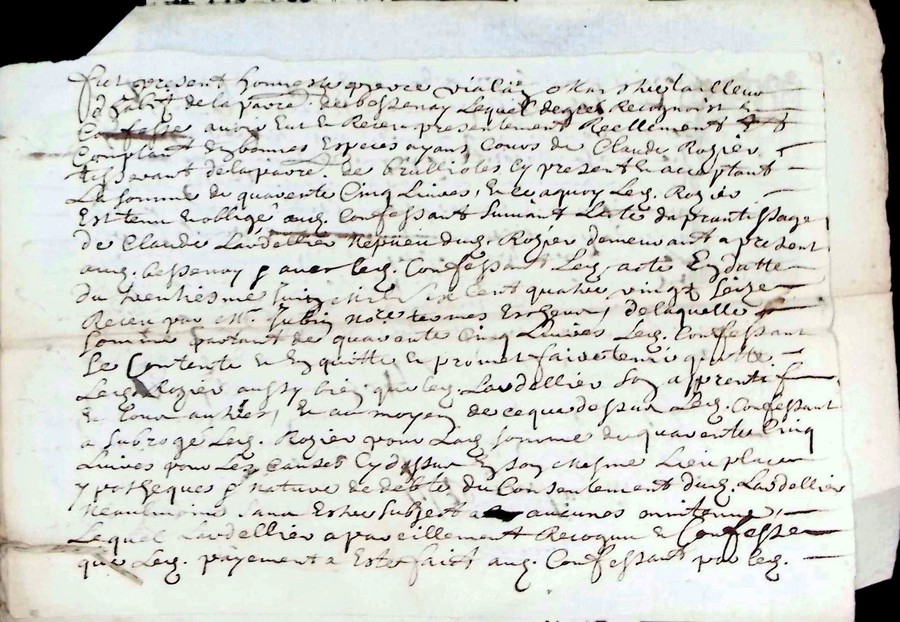 fut present honneste pierre vialis Mar. tailleur
d'habit de la parre. de bessenay Lequel de gré Recognoist &
Confesse avoir Eut & Receu presentement Reellement &
Comptant en bonnes Especes ayans Cours de Claude Rozier
tisserant de la parre. de brullioles Cy present & acceptant
La somme de quarente Cinq Livres, En ce a quoy Led. Rozier
Est tenu & obligé aud. Confessant suivant L'acte daprantissage
de Claude Lardellier Nepveu dud. Rozier demeurant a present
aud. bessenay & avec led. Confessant Led. acte En datte
du trentiesme Juin Mil six cent quatre vingt seize
Receu par Me. Jubin Nore. termes Escheus, de laquelle
somme partant de quarente Cinq Livres Led. Confessant
se Contente & En quitte & promet faire tenir quitte
Led. Rozier aussy bien que led. Lardellier son apprentif
& tous autres, Et au moyen de ce que dessus Led. Confessant
a subrogé Led. Rozier pour Lad. somme de quarente Cinq
Livres pour Les Causes Cy dessus En son mesme Lieu place
ypotheques & Nature de debte du Consentement dud. Lardellier
Neanlmoins sans Estre subject a aucunes
Lequel Lardellier a pareillement Recognu & Confesse
que Led. payement a Esté faict aud. Confessant par led.